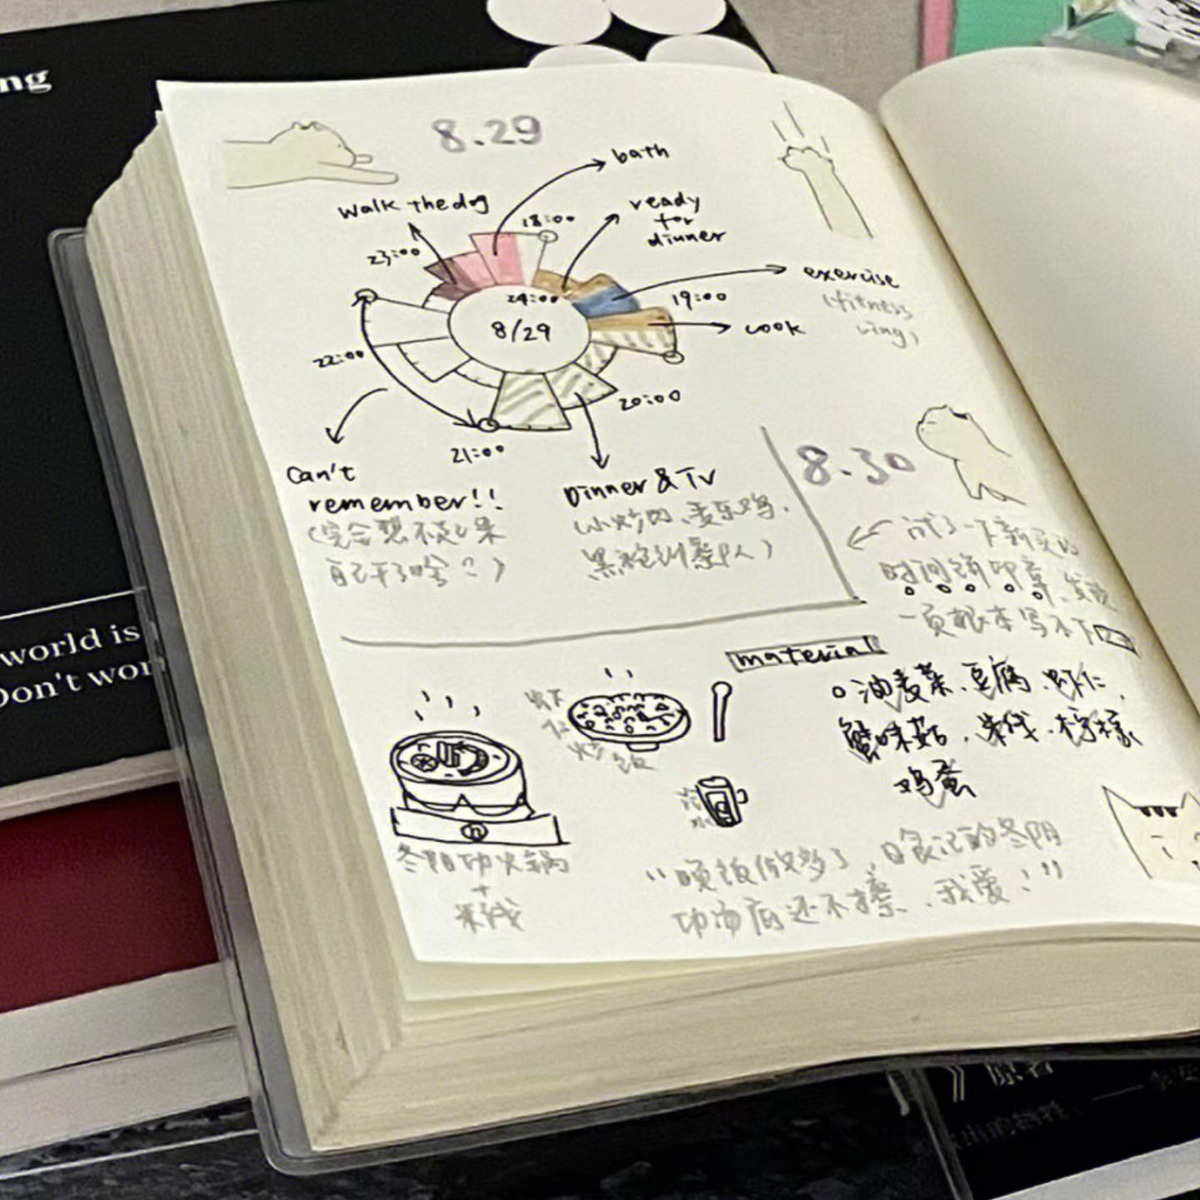 ng
8.29
bath
walk the dog
18:00
ready
for
dinner
23:00
24:00
exercise
(fitness
ring)
19:00
cook
8/29
22:00
20:00
21:00
Can't
remember!!
(完全想不起来
自己干了啥?)
Dinner & TV
(小炒肉、麦乐鸡、
黑袍纠察队)
8.30
试了一下新买的
时间饼印章,发现
一页根本写不下
world is
Don't wor
material
油麦菜、豆腐、虾仁、
蟹味菇、米线、柠檬
鸡蛋
虾仁
炒饭
冰
冬阴功火锅
+
米线
“顿饭做多了,日食记的冬阴
功汤底还不错、我爱!”